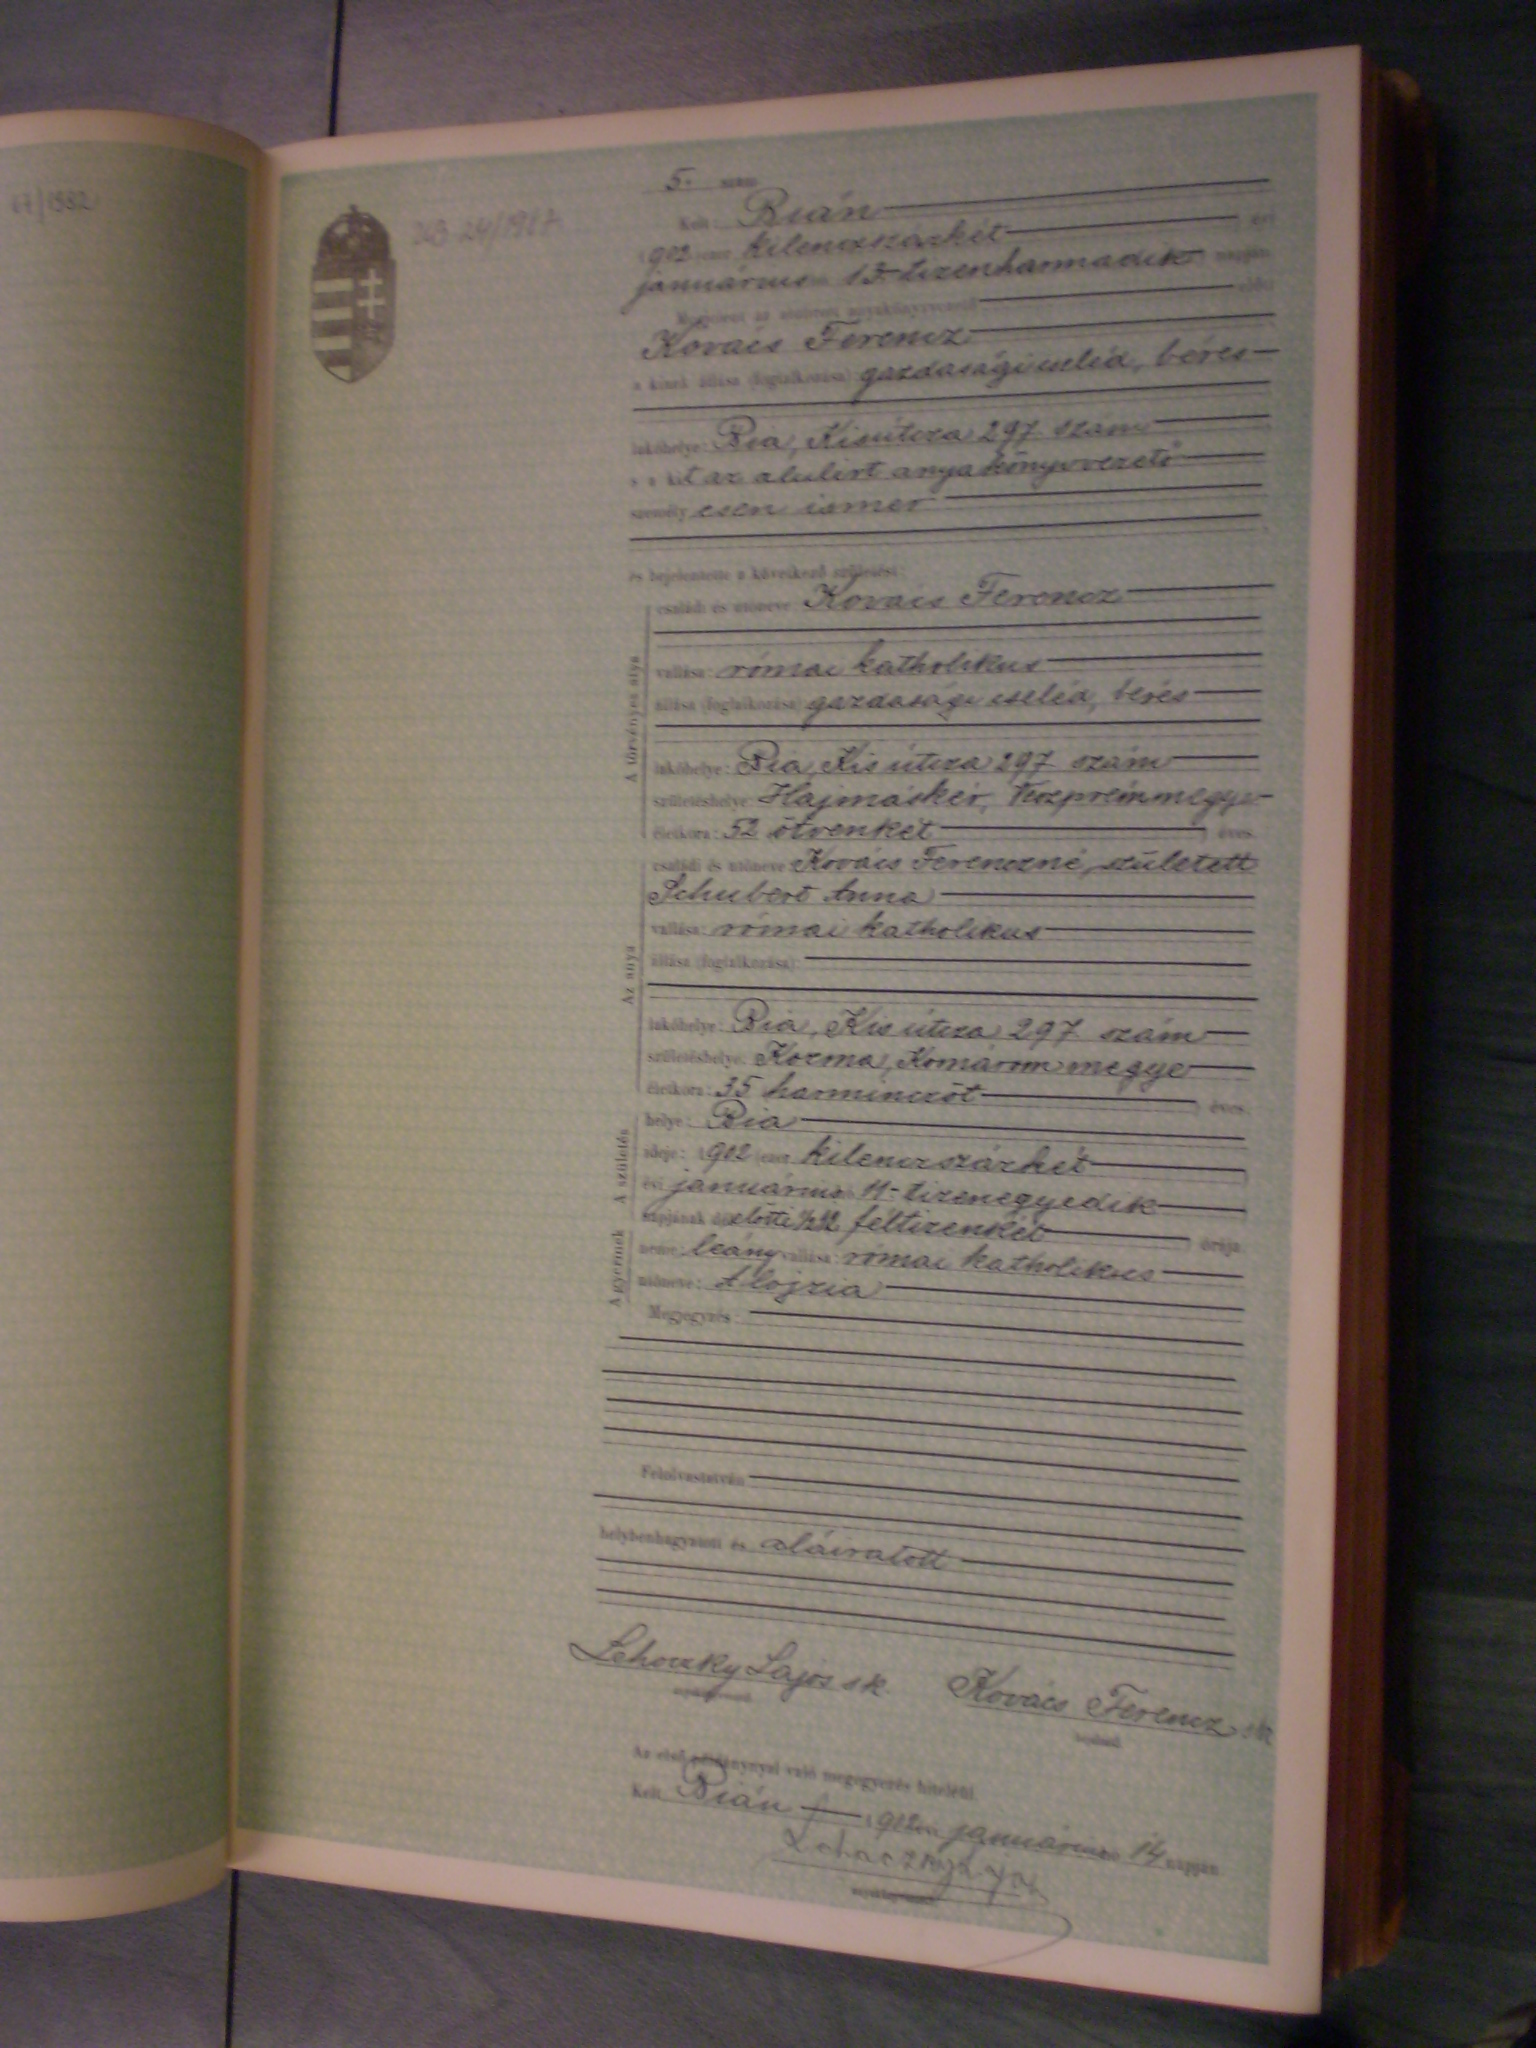 5. szám
Kelt: Bián
1902 ezer kilenczszázkét évi
januárius hó 13. tizenharmadik napján.
Megjelent az alulírott anyakönyvvezető előtt
Kovács Ferencz
a kinek állása (foglalkozása) gazdasági cseléd, béres
lakóhelye: Bia, Kisútcza 297 szám
s a kit az alulirt anyakönyvvezető
személy esen ismer
és bejelentette a következő születést:
A törvényes atya
családi és utóneve: Kovács Ferencz
vallása: római katholikus
állása (foglalkozása) gazdasági cseléd, béres
lakóhelye: Bia, Kis útcza 297 szám
születéshelye: Hajmáskér, Veszprém megye
életkora: 52 ötvenkét éves.
Az anya
családi és utóneve: Kovács Ferenczné, született
Schubert Anna
vallása: római katholikus
állása (foglalkozása):
lakóhelye: Bia, Kis útcza 297 szám
születéshelye: Kozma, Komárom megye
életkora: 35 harminczöt éves.
A születés
helye: Bia
ideje: 1902 ezer kilenczszázkét
évi januárius hó 11- tizenegyedik
napjának délelőtti ½12 féltizenkét órája.
A gyermek
neme: leány vallása: római katholikus
utóneve: Alojzia
Megjegyzés:
Felolvastatván
helybenhagyatott és aláiratott
Lehoczky Lajos s k. Kovács Ferencz sk
anyakönyvvezető. bejelentő.
Az első példánynyal való megegyezés hiteléül.
Kelt Bián 1902 évi januárius hó 14 napján
anyakönyvvezető.